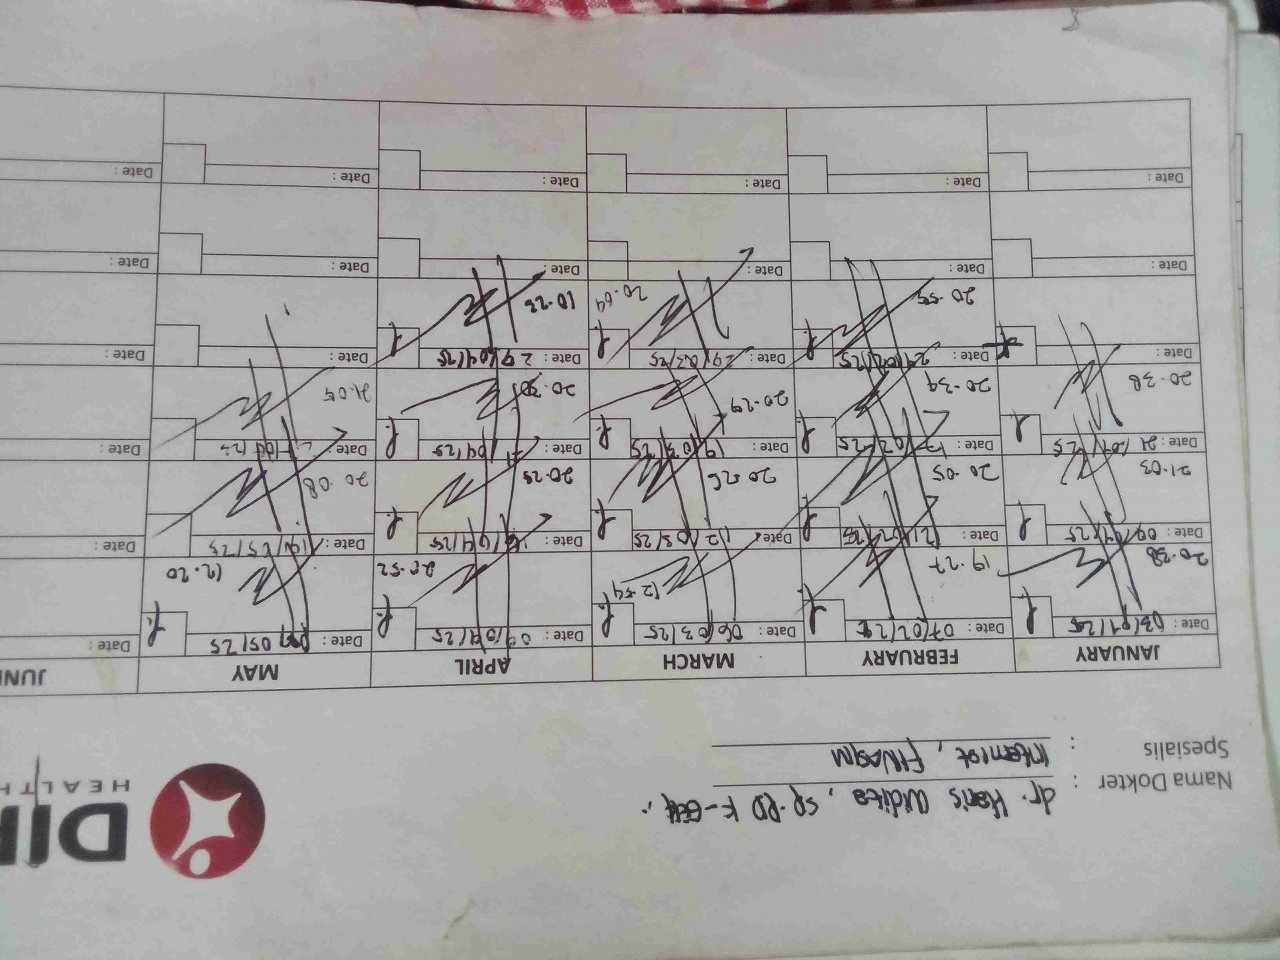 DI
HEALTH
Nama Dokter : dr. Haris Widita, Sp.PD K-GEH
Spesialis : Internist, FINASIM
JANUARY FEBRUARY MARCH APRIL MAY JUNE
Date : 03/01/25 Date : 07/02/25 Date : 06/03/25 Date : 09/04/25 Date : 05/25 Date :
20.38 19.27 12.54 20.52 12.20
Date : 09/ Date : Date : 12/03/25 Date : 16/04/25 Date : 14/05/25 Date :
21.03 20.05 20.26 20.25 20.08
Date : 21/01/25 Date : 17/02/25 Date : 19/03/25 Date : 04/25 Date : Date :
20.38 20.39 20.29 20.30 21.05
Date : Date : 24/02/25 Date : 29/03/25 Date : 29/04/25 Date : Date :
20.55 20.09 10.23
Date : Date : Date : Date : Date : Date :
Date : Date : Date : Date : Date : Date :